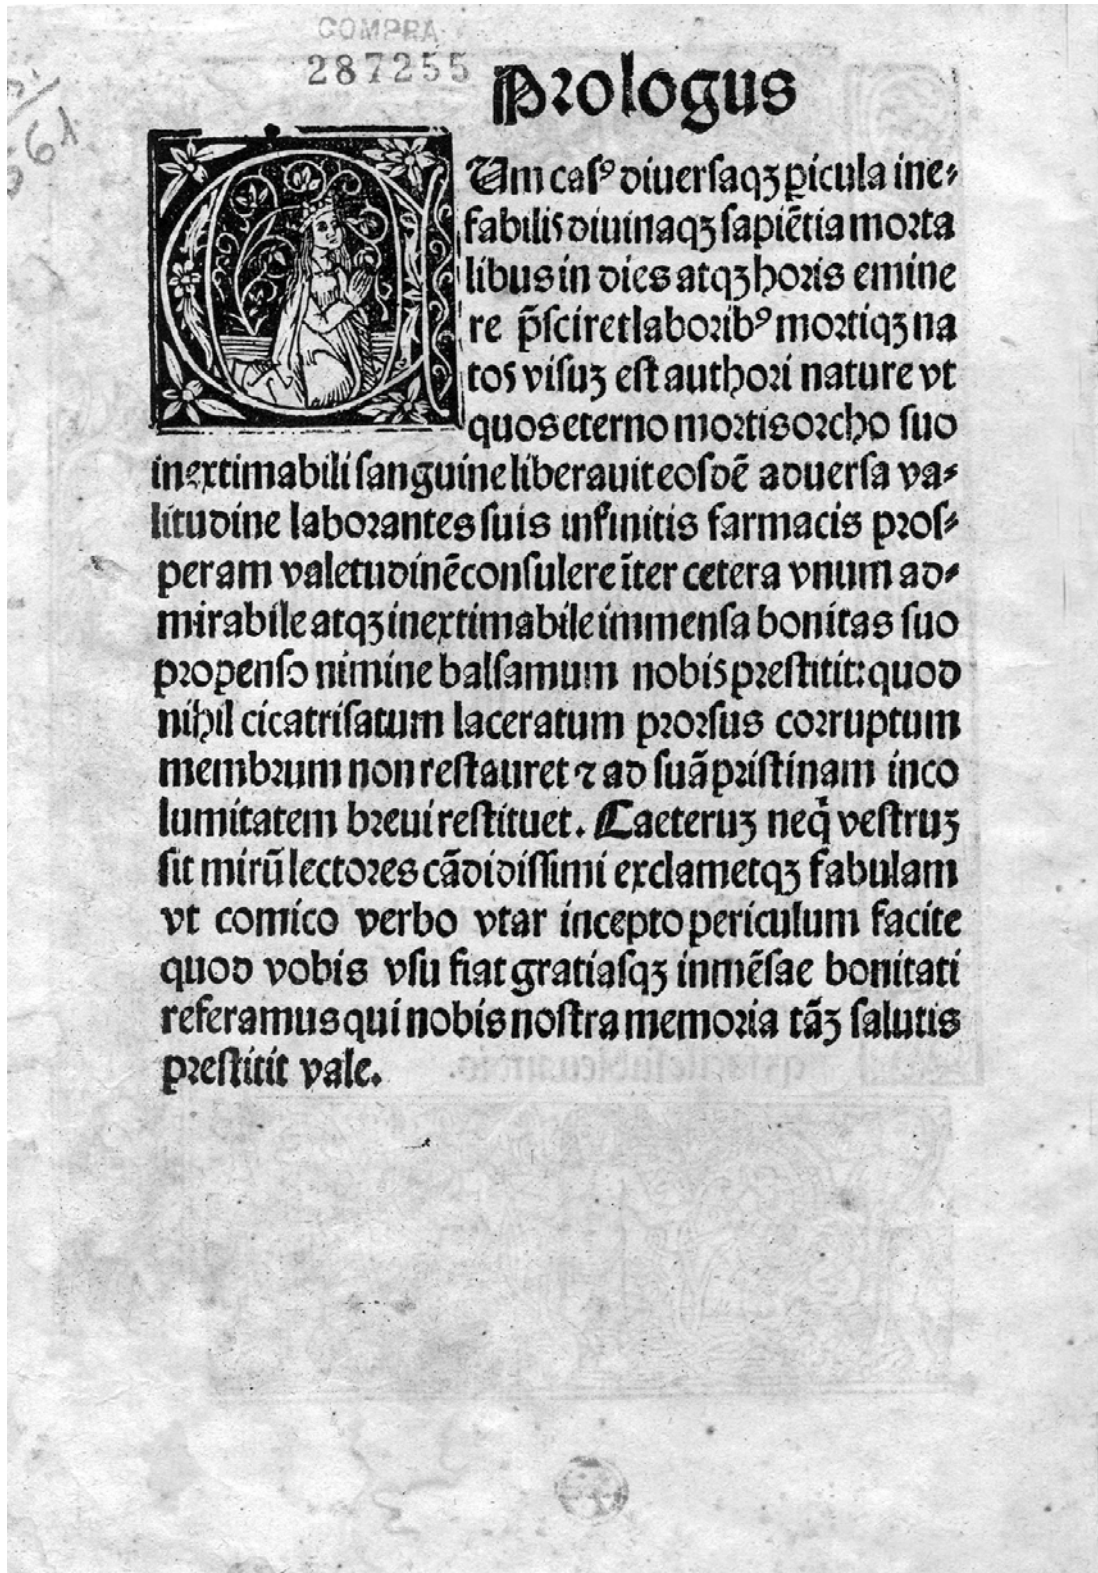 COMPRA
287255
Prologus
Um casꝰ diuersaqꝫ ꝑicula ine-
fabilis diuinaqꝫ sapiētia morta
libus in dies atqꝫ horis emine
re p̄sciret laboribꝰ mortiqꝫ na
tos visuꝫ est authori nature vt
quos eterno mortis orcho suo
inextimabili sanguine liberauit eosdē aduersa va-
litudine laborantes suis infinitis farmacis pros-
peram valetudinē consulere īter cetera vnum ad-
mirabile atqꝫ inextimabile immensa bonitas suo
propenso nimine balsamum nobis prestitit: quod
nihil cicatrisatum laceratum prorsus corruptum
membrum non restauret ⁊ ad suā pristinam inco
lumitatem breui restituet. Caeteruꝫ neqͥ vestruꝫ
sit mirū lectores cādidissimi exclametqꝫ fabulam
vt comico verbo vtar incepto periculum facite
quod vobis vsu fiat gratiasqꝫ inmēsae bonitati
referamus qui nobis nostra memoria tāꝫ salutis
prestitit vale.